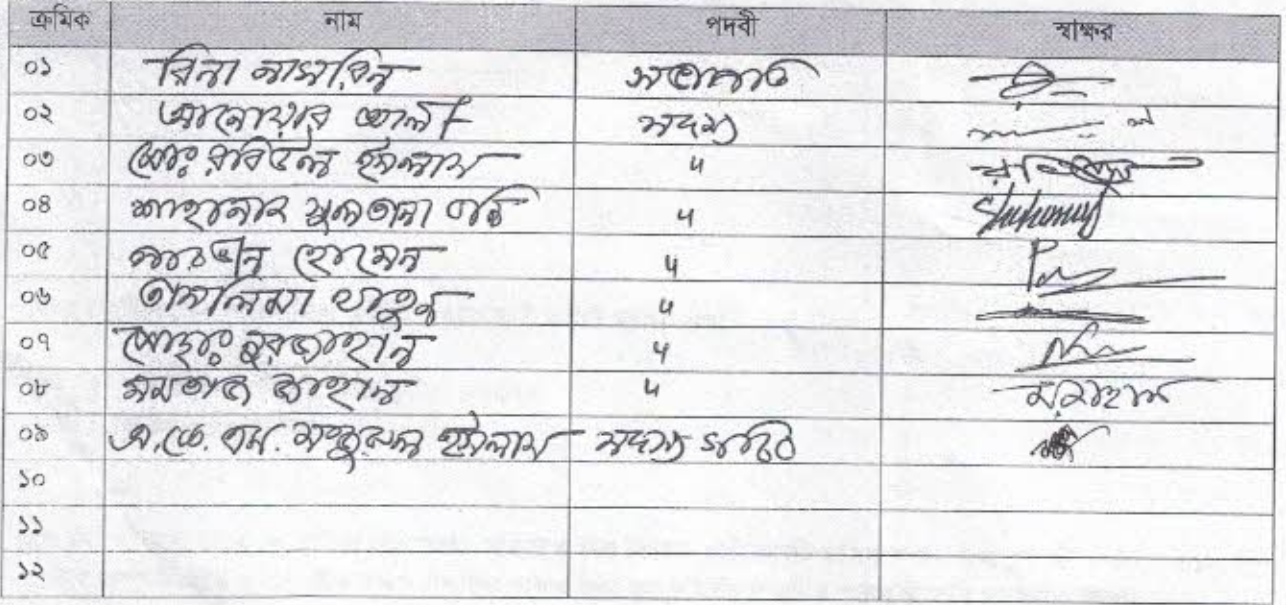 ক্রমিক নাম পদবী স্বাক্ষর
০১ রিনা নাসরিন সভাপতি
০২ আনোয়ার আলী সদস্য
০৩ মোঃ রবিউল ইসলাম "
০৪ শাহানাজ সুলতানা "
০৫ পারভীন হোসেন " P
০৬ তাসলিমা খাতুন "
০৭ মোছাঃ নুরজাহান "
০৮ মমতাজ জাহান "
০৯ এ.কে. এম. ইসলাম সদস্য সচিব
১০
১১
১২